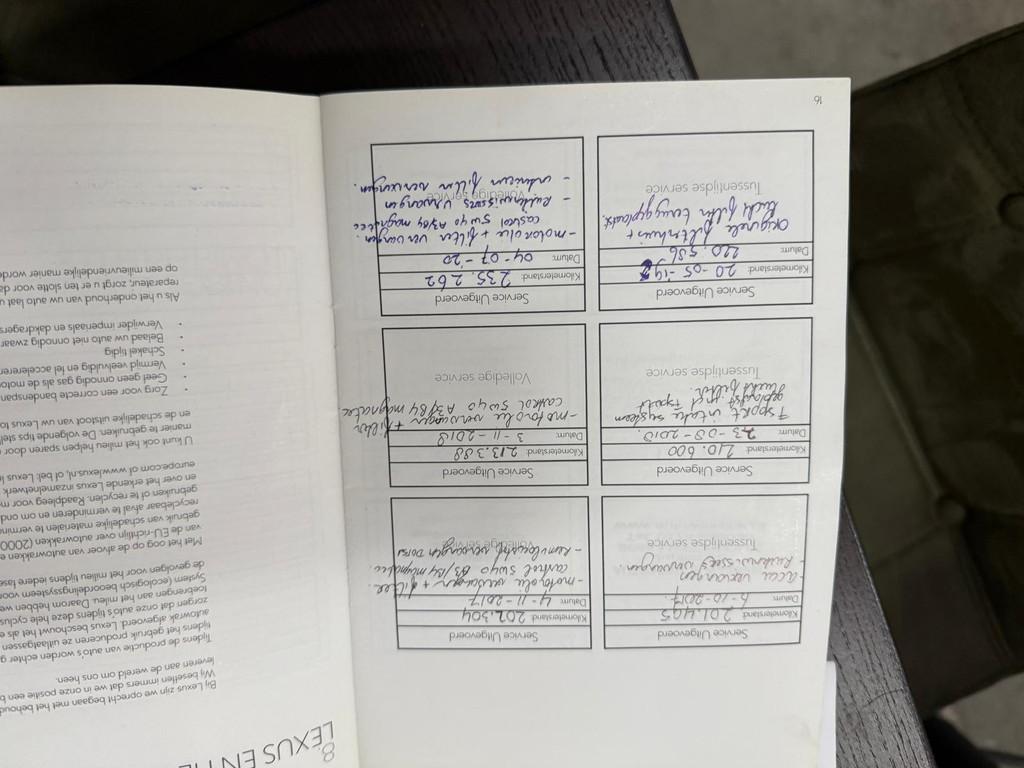 Service Uitgevoerd
Kilometerstand: 201.495
Datum: 6-10-2017.
- accu vervangen
- Ruitenwissers vervangen.
Tussentijdse service
Service Uitgevoerd
Kilometerstand: 202.304
Datum: 4-11-2017
- motorolie vervangen + filter
castrol 5w40 magnatec.
- Remvloeistof vervangen
Volledige service
Service Uitgevoerd
Kilometerstand: 210.600
Datum: 23-08-2018.
sport intake systeem
geplaatst met
luchtfilter.
Tussentijdse service
Service Uitgevoerd
Kilometerstand: 213.388
Datum: 3-11-2018
- motorolie vervangen + filter
castrol 5w40 A3/B4 magnatec
Volledige service
Service Uitgevoerd
Kilometerstand: 20-05-19
Datum: 220.586
Originele filterhuis +
lucht filter teruggeplaatst.
Tussentijdse service
Service Uitgevoerd
Kilometerstand: 235.262
Datum: 04-07-20
- motorolie + filter vervangen.
castrol 5w40 A3/B4 magnatec
- Ruitenwissers vervangen
- interieur filter vervangen.
Volledige service
16
8
LEXUS EN HE
Bij Lexus zijn we oprecht begaan met het behoud
Wij beseffen immers dat we in onze positie een b
leveren aan de wereld om ons heen.
Tijdens de productie van auto's worden echter g
tijdens het gebruik produceren ze uitlaatgassen
autowrak afgevoerd. Lexus beschouwt het als e
zorgen dat onze auto's tijdens deze hele cyclus
toebrengen aan het milieu. Daarom hebben we
System (ecologisch beoordelingssysteem voor
de gevolgen voor het milieu tijdens iedere fase
Met het oog op de afvoer van autowrakken e
van de EU-richtlijn over autowrakken (2000
gebruik van schadelijke materialen te vermin
recyclebaar afval te verminderen en om ond
gebruiken of te recyclen. Raadpleeg voor m
en over het erkende Lexus inzamelnetwerk
europe.com of www.lexus.nl, of bel: Lexus In
U kunt ook het milieu helpen sparen door o
manier te gebruiken. De volgende tips stell
en de schadelijke uitstoot van uw Lexus to
• Zorg voor een correcte bandenspan
• Geef geen onnodig gas als de motor
• Vermijd veelvuldig en fel accelereren
• Schakel tijdig
• Belaad uw auto niet onnodig zwaar
• Verwijder imperiaals en dakdragers
Als u het onderhoud van uw auto laat u
reparateur, zorgt u er ten slotte voor da
op een milieuvriendelijke manier worde